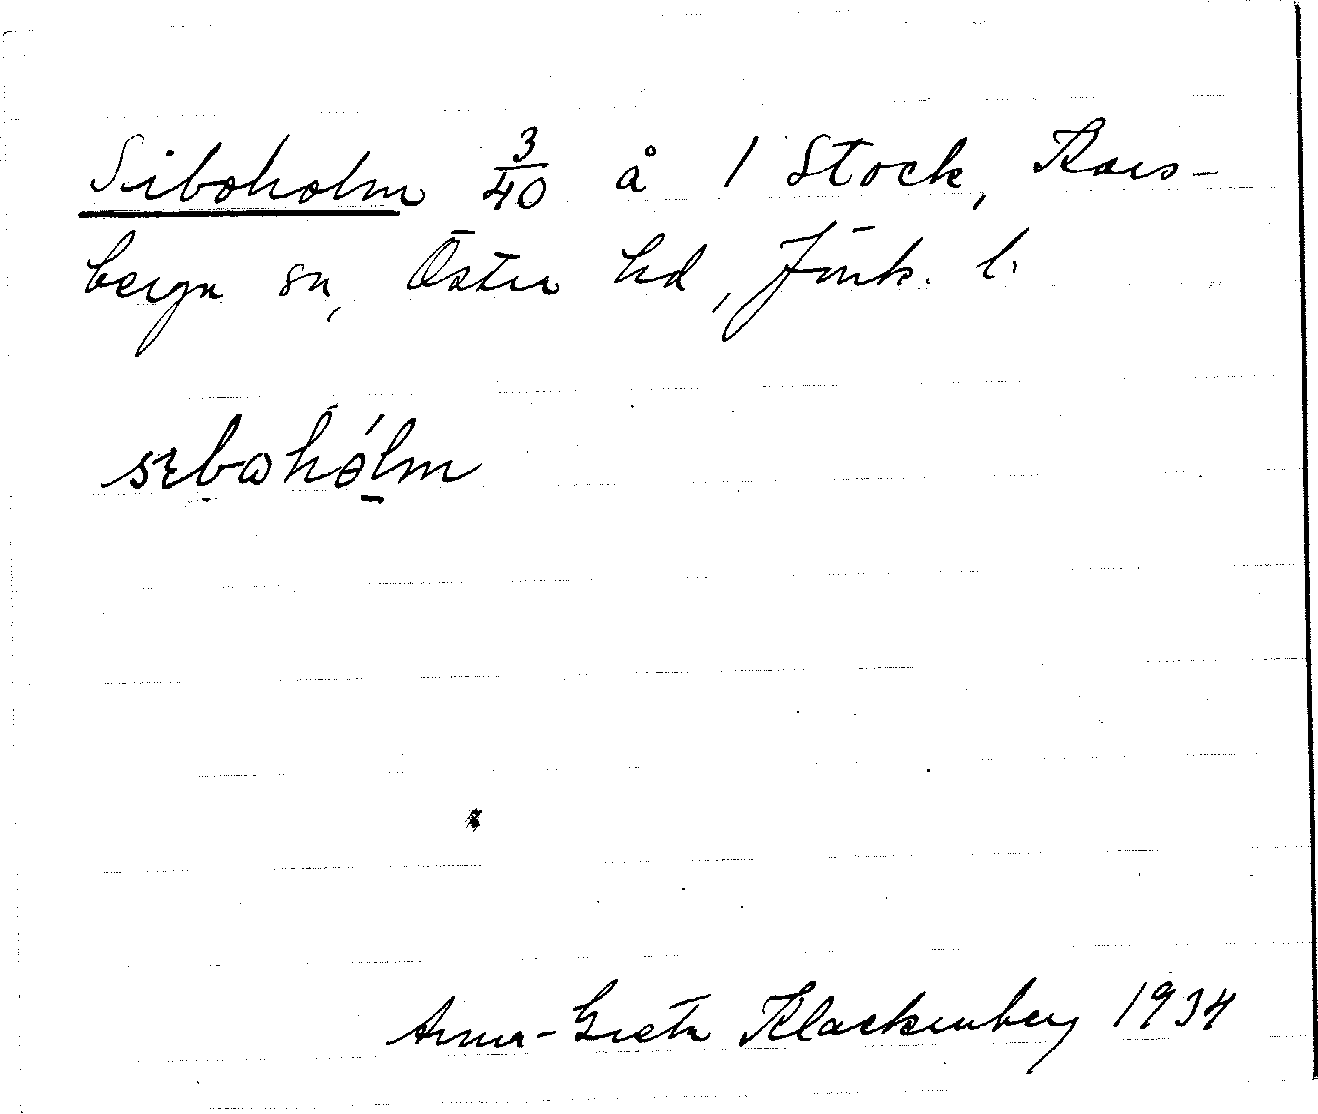 Siboholm 3/40 å 1 Stock, Kors-
berga sn, Östra hd, Jönk. l.
sɩbohólm
Anna-Greta Klackenberg 1934